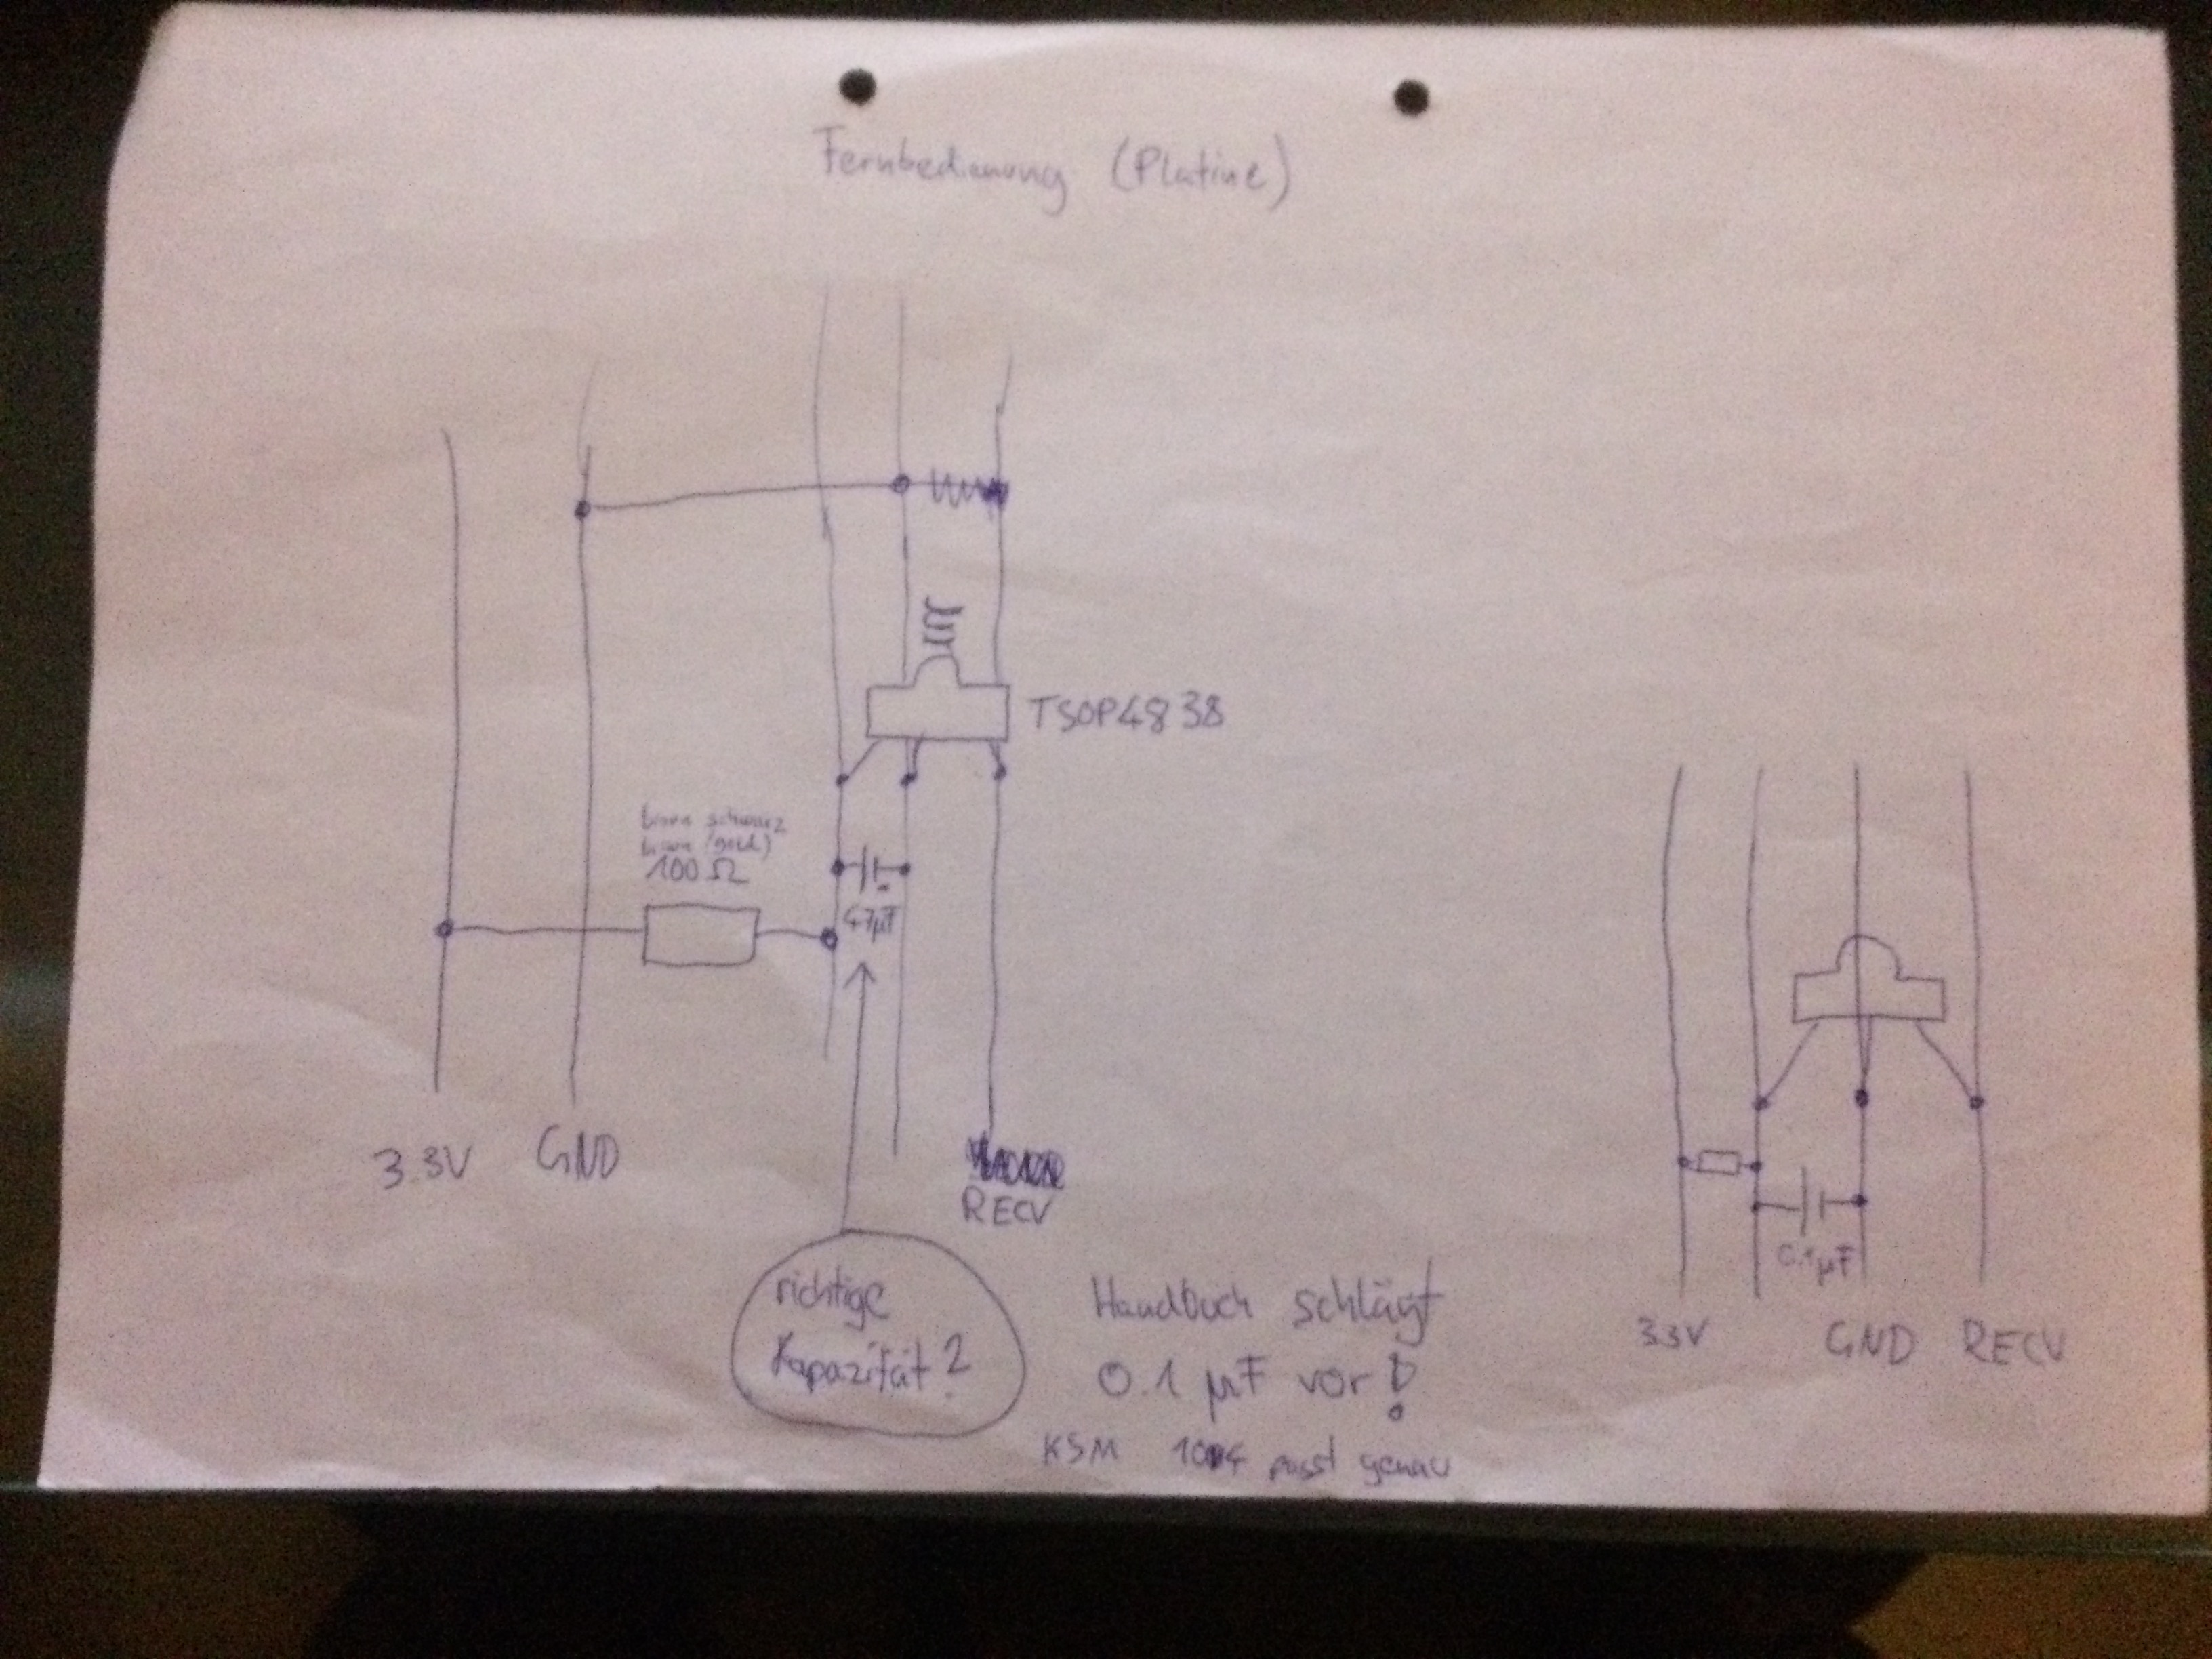 Fernbedienung (Platine)
TSOP4838
braun schwarz
braun (gold)
100Ω
47µF
3.3V
GND
RECV
richtige
Kapazität?
Handbuch schlägt
0.1 µF vor!
KSM 104 passt genau
0.1µF
3.3V
GND
RECV